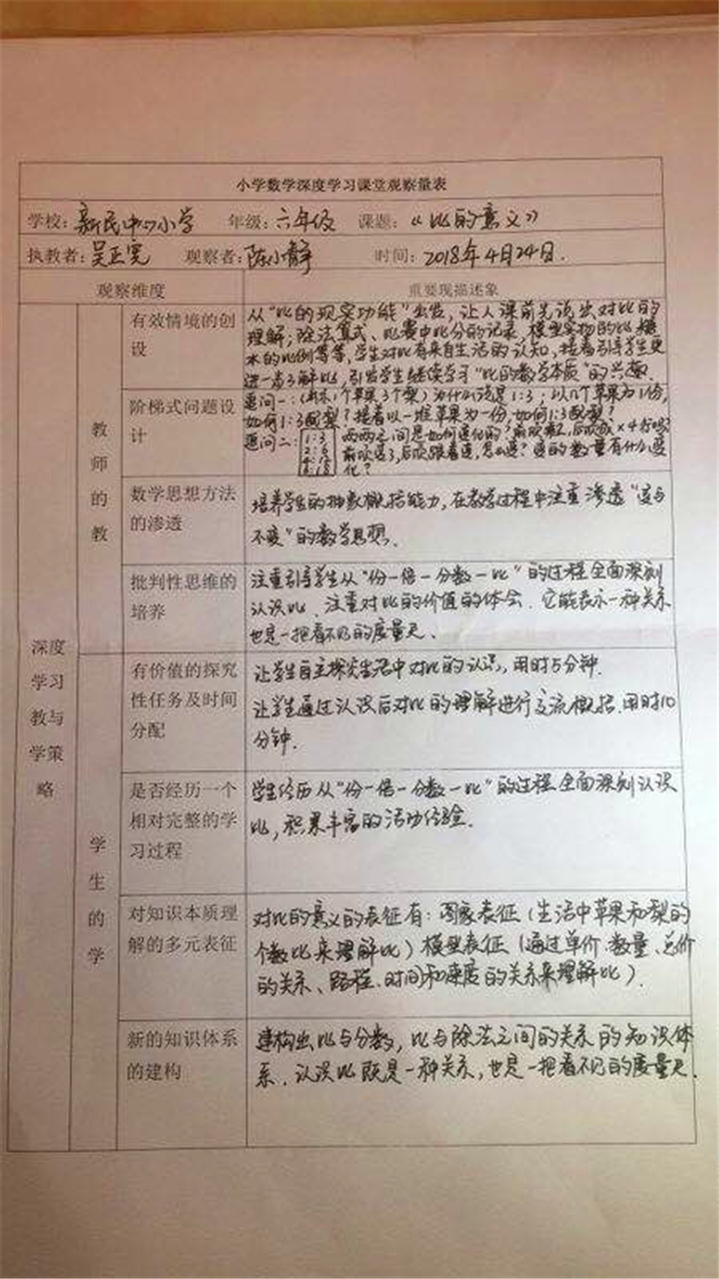 小学数学深度学习课堂观察量表
学校：新民中心小学 年级：六年级 课题：《比的意义》
执教者：吴正宪 观察者：陈小静 时间：2018年4月24日.
观察维度 重要现描述象
深度
学习
教与
学策
略
教
师
的
教
有效情境的创
设
从“比的现实功能”出发，让人课前先说出对比的
理解；除法算式、比赛中比分的记录、模型实物的比、
本的比例等等，学生对比有来自生活的认知，接着引导学生更
进一步了解比，引发学生继续学习“比的数学本质”的兴趣.
阶梯式问题设
计
追问一：（出示1个苹果3个梨）为什么说是1:3；以几个苹果为1份，
如何1:3配梨？接着以一堆苹果为一份，如何1:3配梨？
追问二：1:3 两两之间是如何变化的？前项乘4，后项也×4行吗？
2:6 前项变了，后项跟着变，怎么变？变的数量有什么变
化？
数学思想方法
的渗透
培养学生的抽象概括能力，在教学过程中注重渗透“变与
不变”的数学思想.
批判性思维的
培养
注重引导学生从“份一倍一分数一比”的过程全面深刻
认识比，注重对比的价值的体会.它能表示一种关系
也是一把看不见的度量尺.
学
生
的
学
有价值的探究
性任务及时间
分配
让学生自主探究生活中对比的认识，用时5分钟.
让学生通过认识后对比的理解进行交流概括.用时10
分钟.
是否经历一个
相对完整的学
习过程
学生经历从“份一倍一分数一比”的过程全面深刻认识
比，积累丰富的活动经验.
对知识本质理
解的多元表征
对比的意义的表征有：图象表征（生活中苹果和梨的
个数比来理解比）模型表征（通过单价、数量、总价
的关系、路程、时间和速度的关系来理解比）.
新的知识体系
的建构
建构出比与分数，比与除法之间的关系的知识体
系.认识比既是一种关系，也是一把看不见的度量尺.